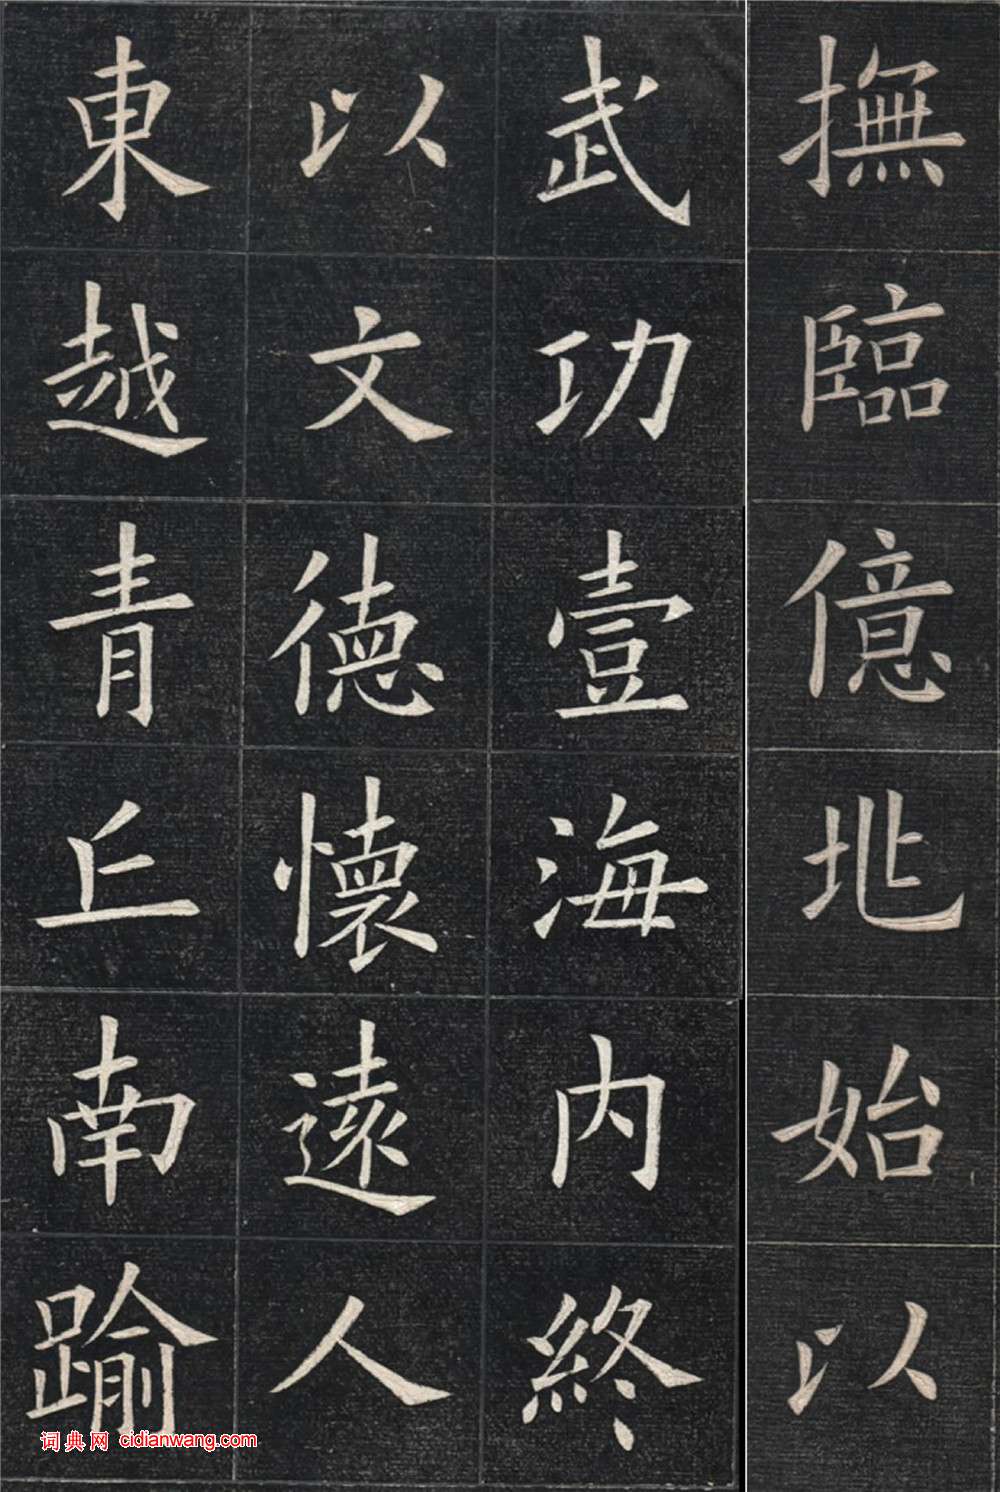 撫臨億兆始以
武功壹海内終
以文德懷遠人
東越青丘南踰
词典网 cidianwang.com